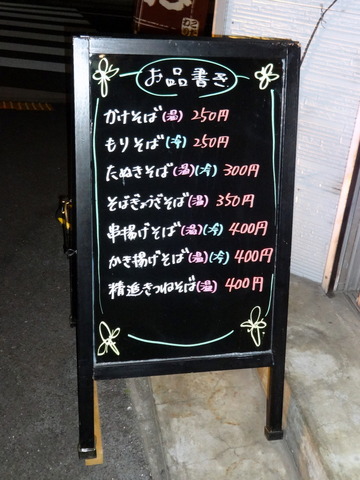 お品書き
かけそば(温) 250円
もりそば(冷) 250円
たぬきそば(温)(冷) 300円
そばぎょうざそば(温) 350円
串揚げそば(温)(冷) 400円
かき揚げそば(温)(冷) 400円
精進きつねそば(温) 400円